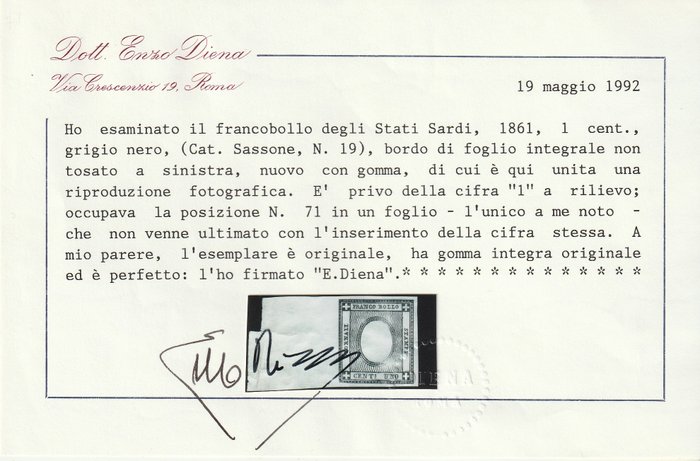 Dott. Enzo Diena
Via Crescenzio 19, Roma
19 maggio 1992
Ho esaminato il francobollo degli Stati Sardi, 1861, 1 cent.,
grigio nero, (Cat. Sassone, N. 19), bordo di foglio integrale non
tosato a sinistra, nuovo con gomma, di cui è qui unita una
riproduzione fotografica. E' privo della cifra "1" a rilievo;
occupava la posizione N. 71 in un foglio - l'unico a me noto -
che non venne ultimato con l'inserimento della cifra stessa. A
mio parere, l'esemplare è originale, ha gomma integra originale
ed è perfetto: l'ho firmato "E.Diena".* * * * * * * * * * * * * *
FRANCO BOLLO
GIORNALI STAMPE
CENT! UNO
DIENA